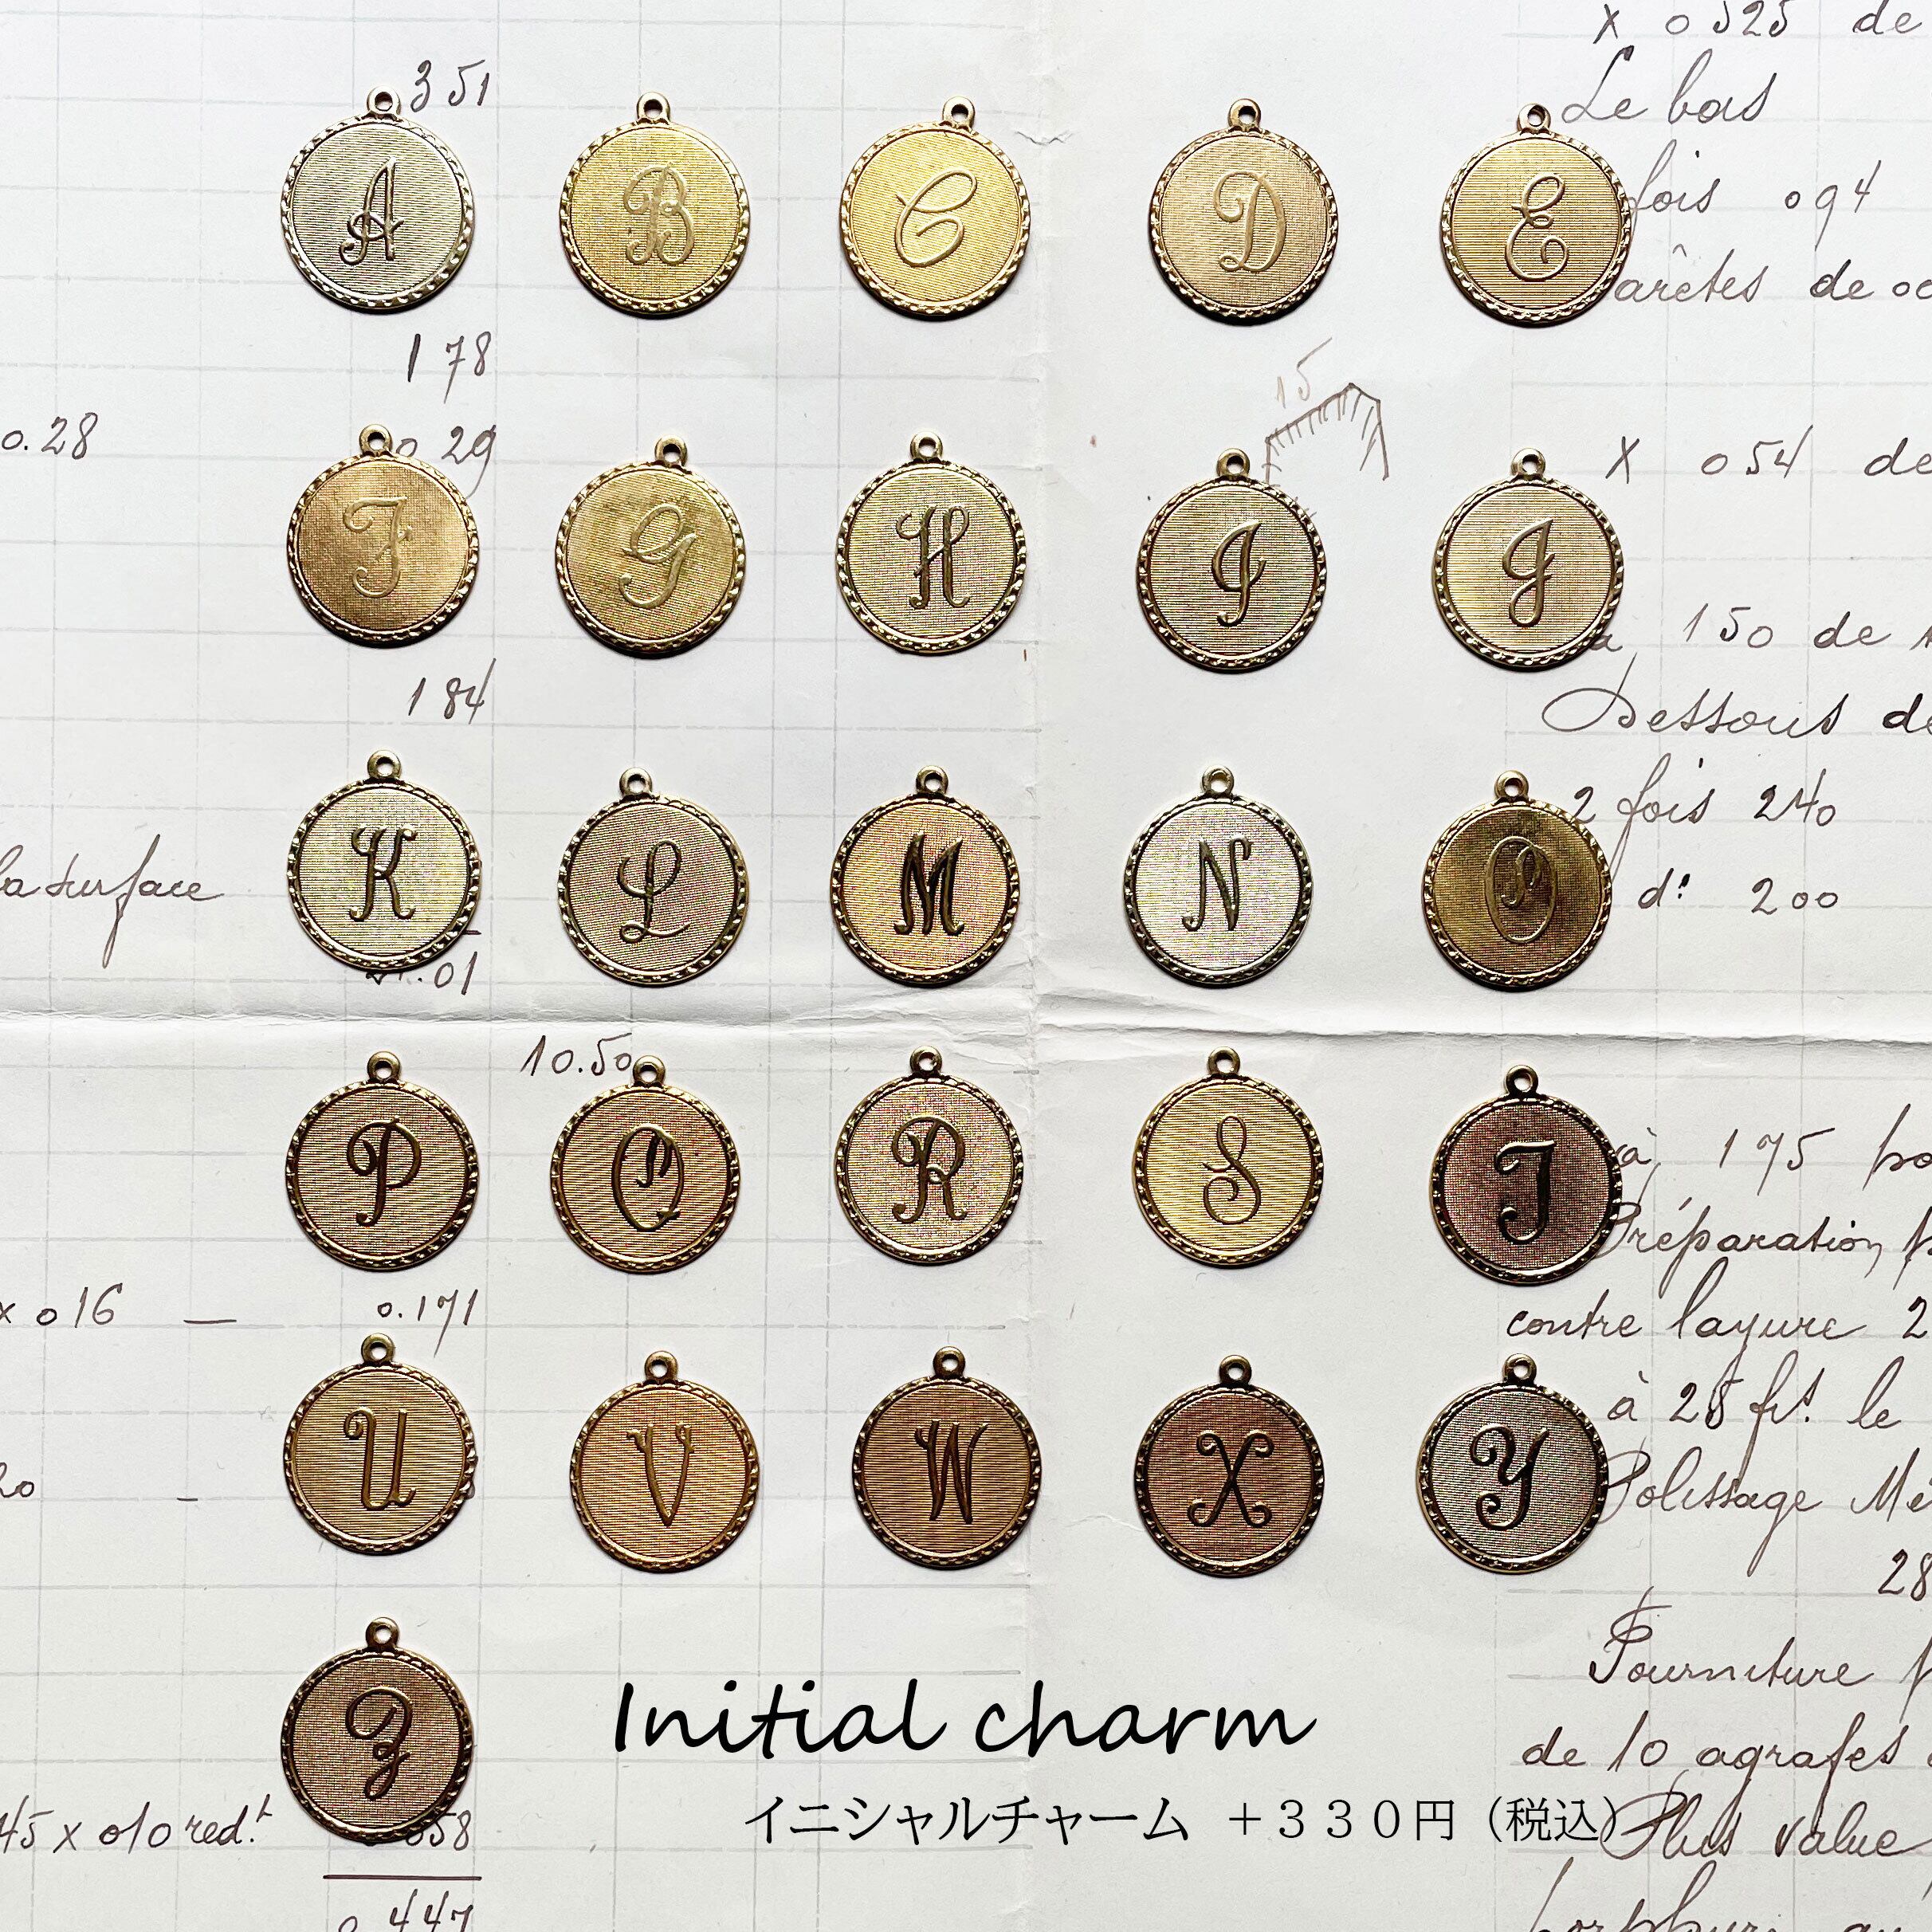 x 0525 de
Le bas
351
A B C D E
fois 094
arêtes de
178
15
0.28
0 29
x 054 de
F G H I J
à 150 de
184
Dessous de
2 fois 240
K L M N O
la surface
d° 200
01
10.50
P Q R S T
à 175
Préparation
x 016 — 0.171
contre layure 2
U V W X Y
à 28 frs. le
Polissage
28
Fourniture
Z
Initial charm
de 10 agrafes
イニシャルチャーム +330円(税込)
45 x 010 red.t 058
Plus value
0 447